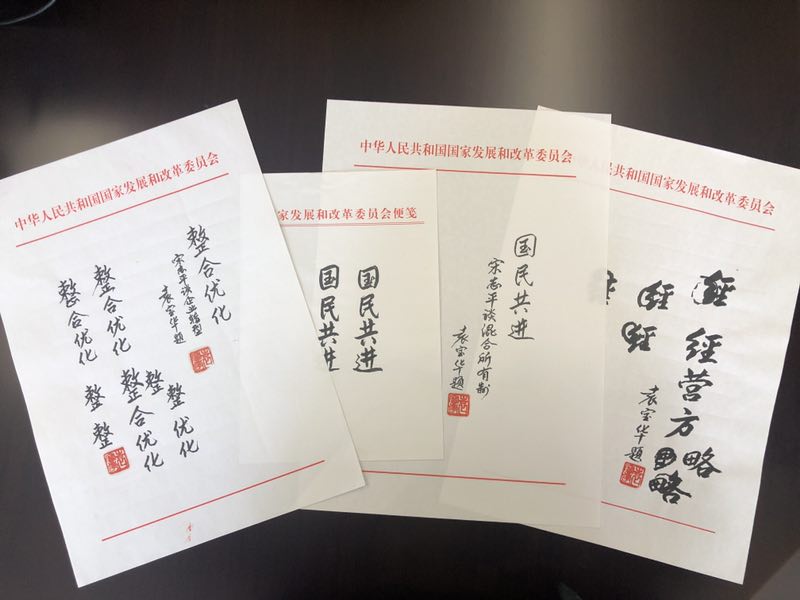 中华人民共和国国家发展和改革委员会
整合优化
宋志平谈企业转型
袁宝华题
整合优化
整合优化
整优化
整
整合优化
整
整
家发展和改革委员会便笺
国民共进
国民共进
中华人民共和国国家发展和改革委员会
国民共进
宋志平谈混合所有制
袁宝华题
民共和国国家发展和改革委员会
经营方略
袁宝华题
略